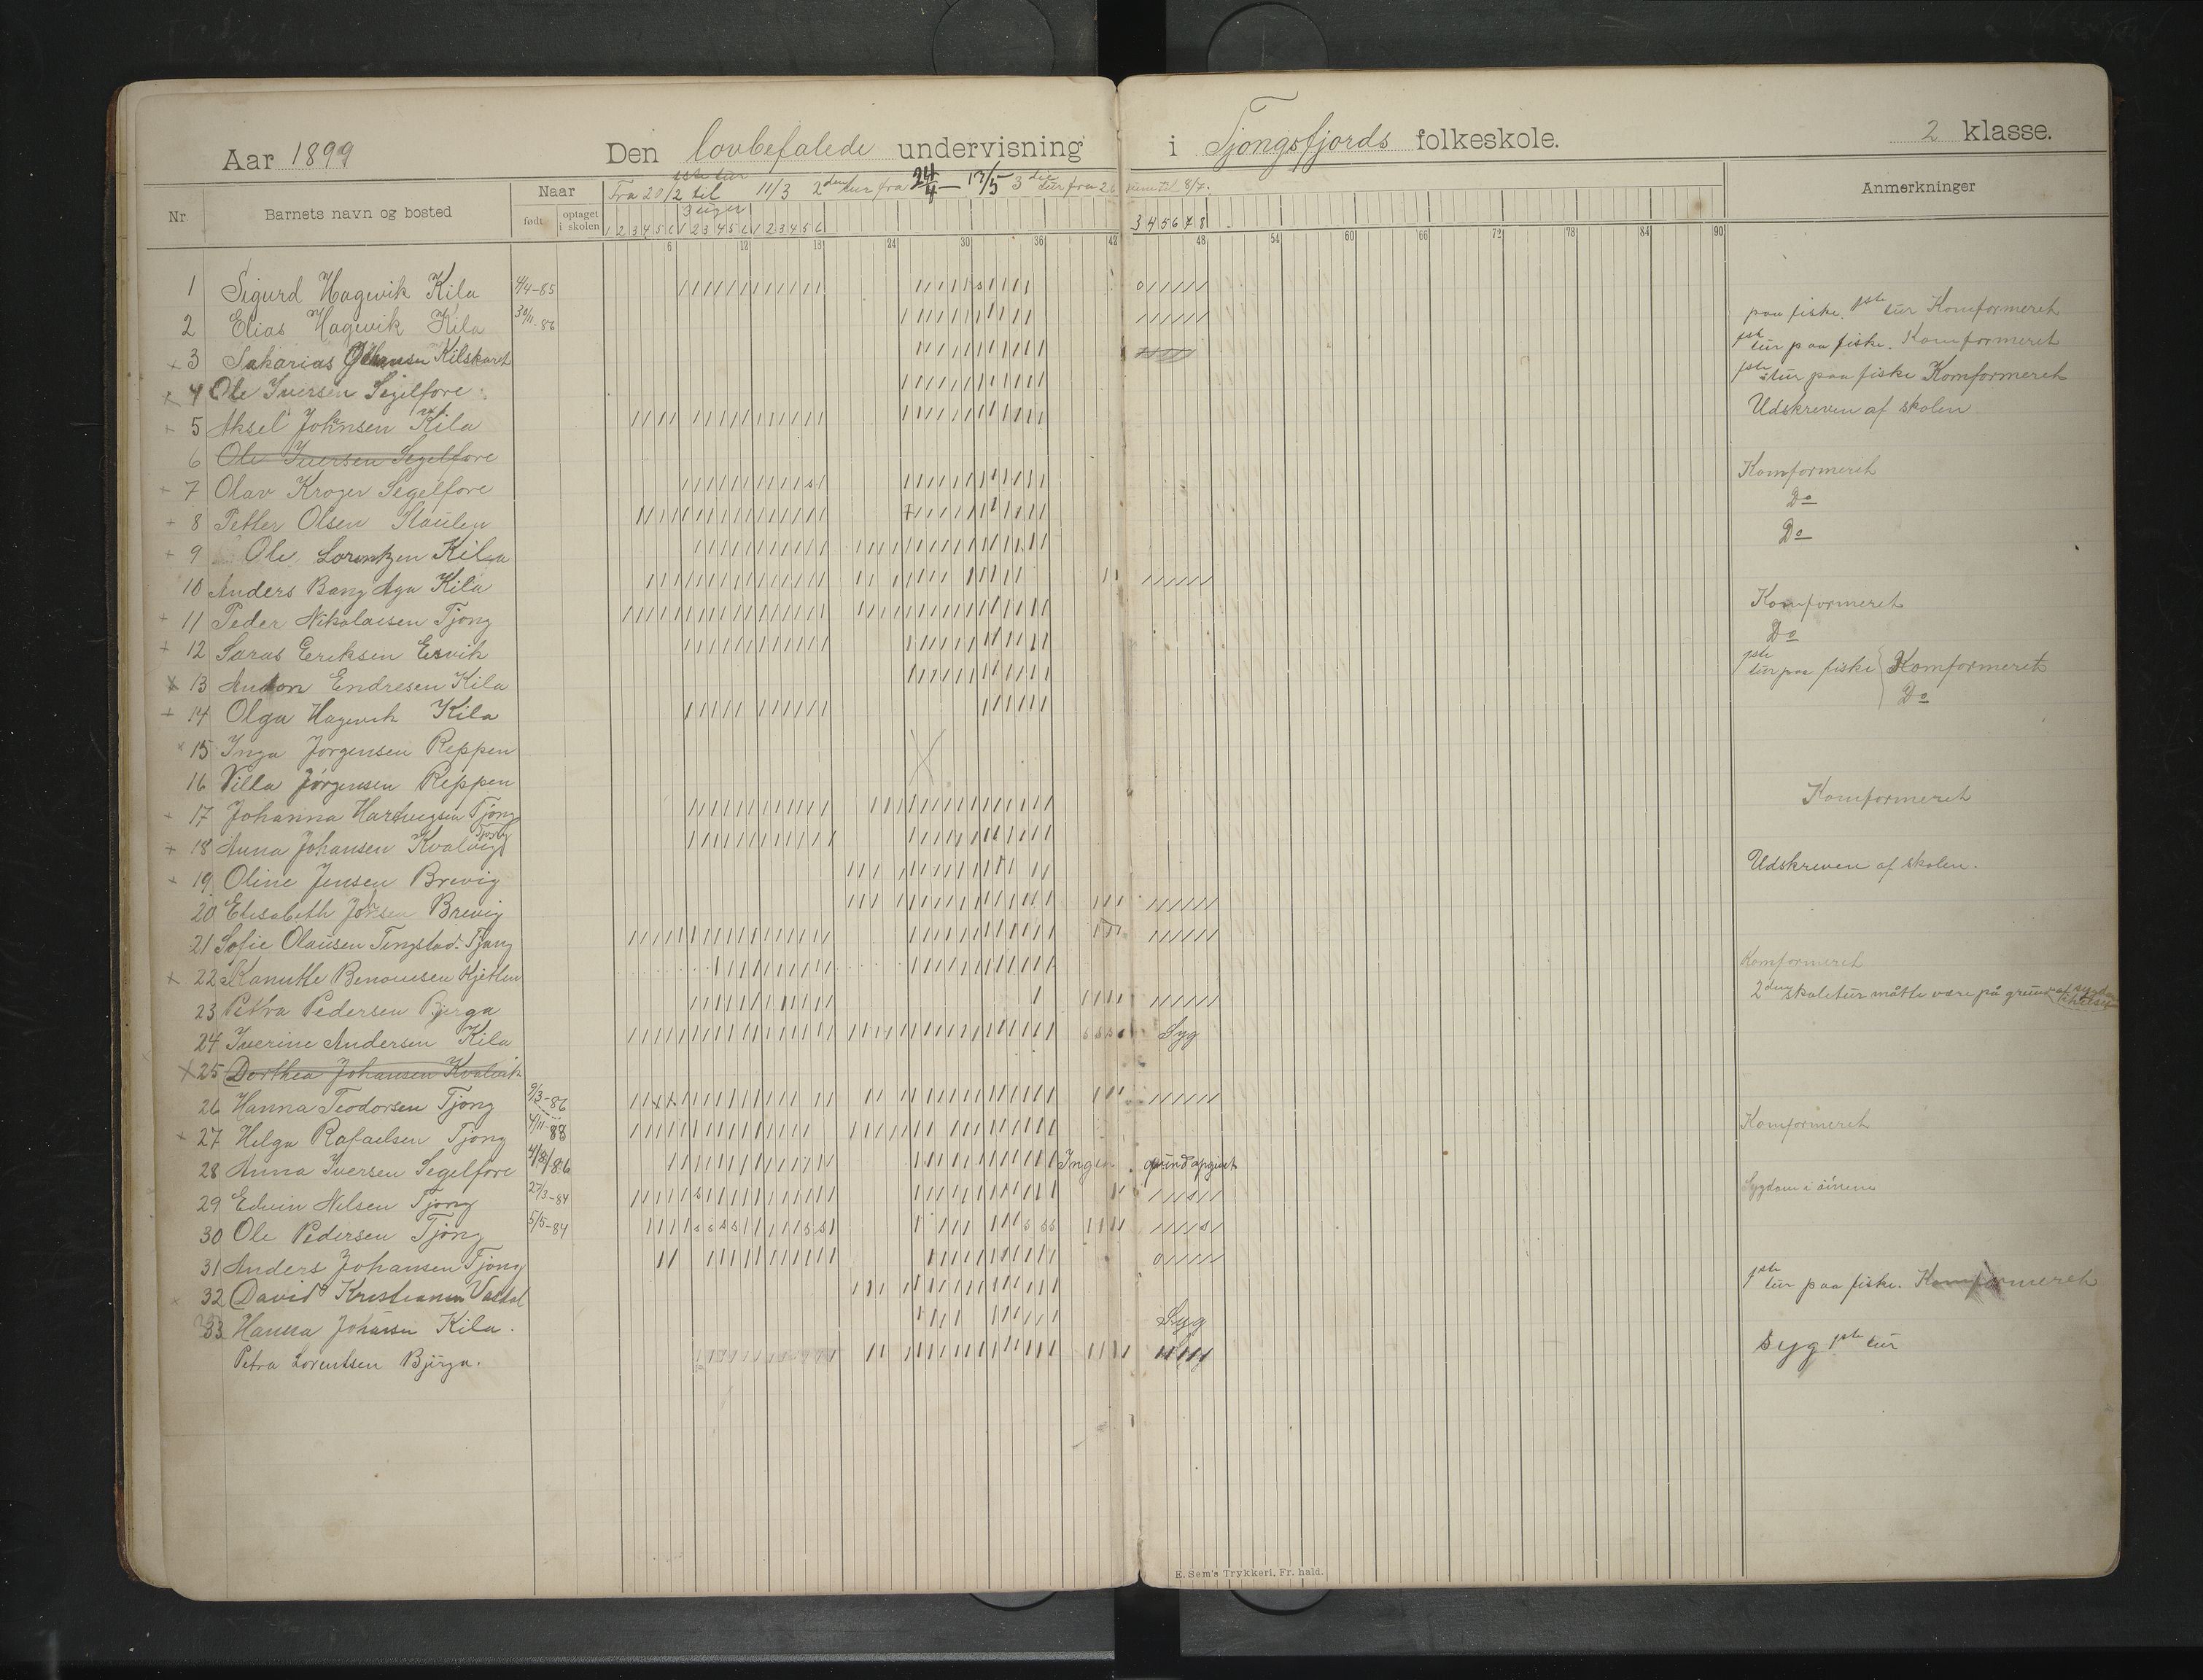 Aar 1899 Den lovbefalede undervisning i Tjongsfjords folkeskole. 2 klasse.
Nr Barnets navn og bosted Naar født optaget i skolen Anmerkninger
1ste tur
Fra 20/2 til 11/3 2den tur fra 24/4 — 13/5 3die tur fra 26 til 8/7.
3 uger
1 2 3 4 5 6 1 2 3 4 5 6 1 2 3 4 5 6 3 4 5 6 7 8
6 12 18 24 30 36 42 48 54 60 66 72 78 84 90
1 Sigurd Hagevik Kila 4/4-85
2 Elias Hagevik Kila 30/11-86 paa fiske. 1ste tur Komformeret
3 Sakarias Johansen Kilskaret 1ste tur paa fiske. Komformeret
4 Ole Iversen Segelfore 1ste tur paa fiske Komformeret
5 Aksel Johnsen Kila Udskreven af skolen
6 Ole Iversen Segelfore
7 Olav Kroger Segelfore Komformerit
8 Petter Olsen Staulen Do
9 Ole Lorentzen Kila Do
10 Anders Bang Aga Kila
11 Peder Nikolaisen Tjong Komformeret
12 Saras Eriksen Esvik Do
13 Anton Endresen Kila 1ste tur paa fiske Komformeret
14 Olga Hagevik Kila Do
15 Inga Jørgensen Reppen
16 Villa Jørgensen Reppen
17 Johanna Hartvigsen Tjong Komformeret
18 Anna Johansen Kvalvig Tjong
19 Oline Jensen Brevig Udskreven af skolen.
20 Elisabeth Johsen Brevig
21 Sofie Olausen Tengstad. Tjong
22 Ranutte Benonisen Kjetlen Komformeret
23 Petra Pedersen Bjerga 2den skoletur måtte være på grund af sygdom
24 Iverine Andersen Kila Syg
25 Dorthea Johansen Kvalvik
26 Hanna Teodorsen Tjong 9/3-86
27 Helga Rafaelsen Tjong 4/11-88 Komformeret
28 Anna Iversen Segelfore 4/8/86 Ingen grund opgivet
29 Edvin Nilsen Tjong 27/3-84 Sygdom i øinene
30 Ole Pedersen Tjong 5/5-84
31 Anders Johansen Tjong
32 David Kristiansen Vasdal 1ste tur paa fiske. Komformeret
33 Hanna Johansen Kila. Syg
Petra Lorentsen Bjerga. Syg 1ste tur
E. Sem's Trykkeri, Fr. hald.